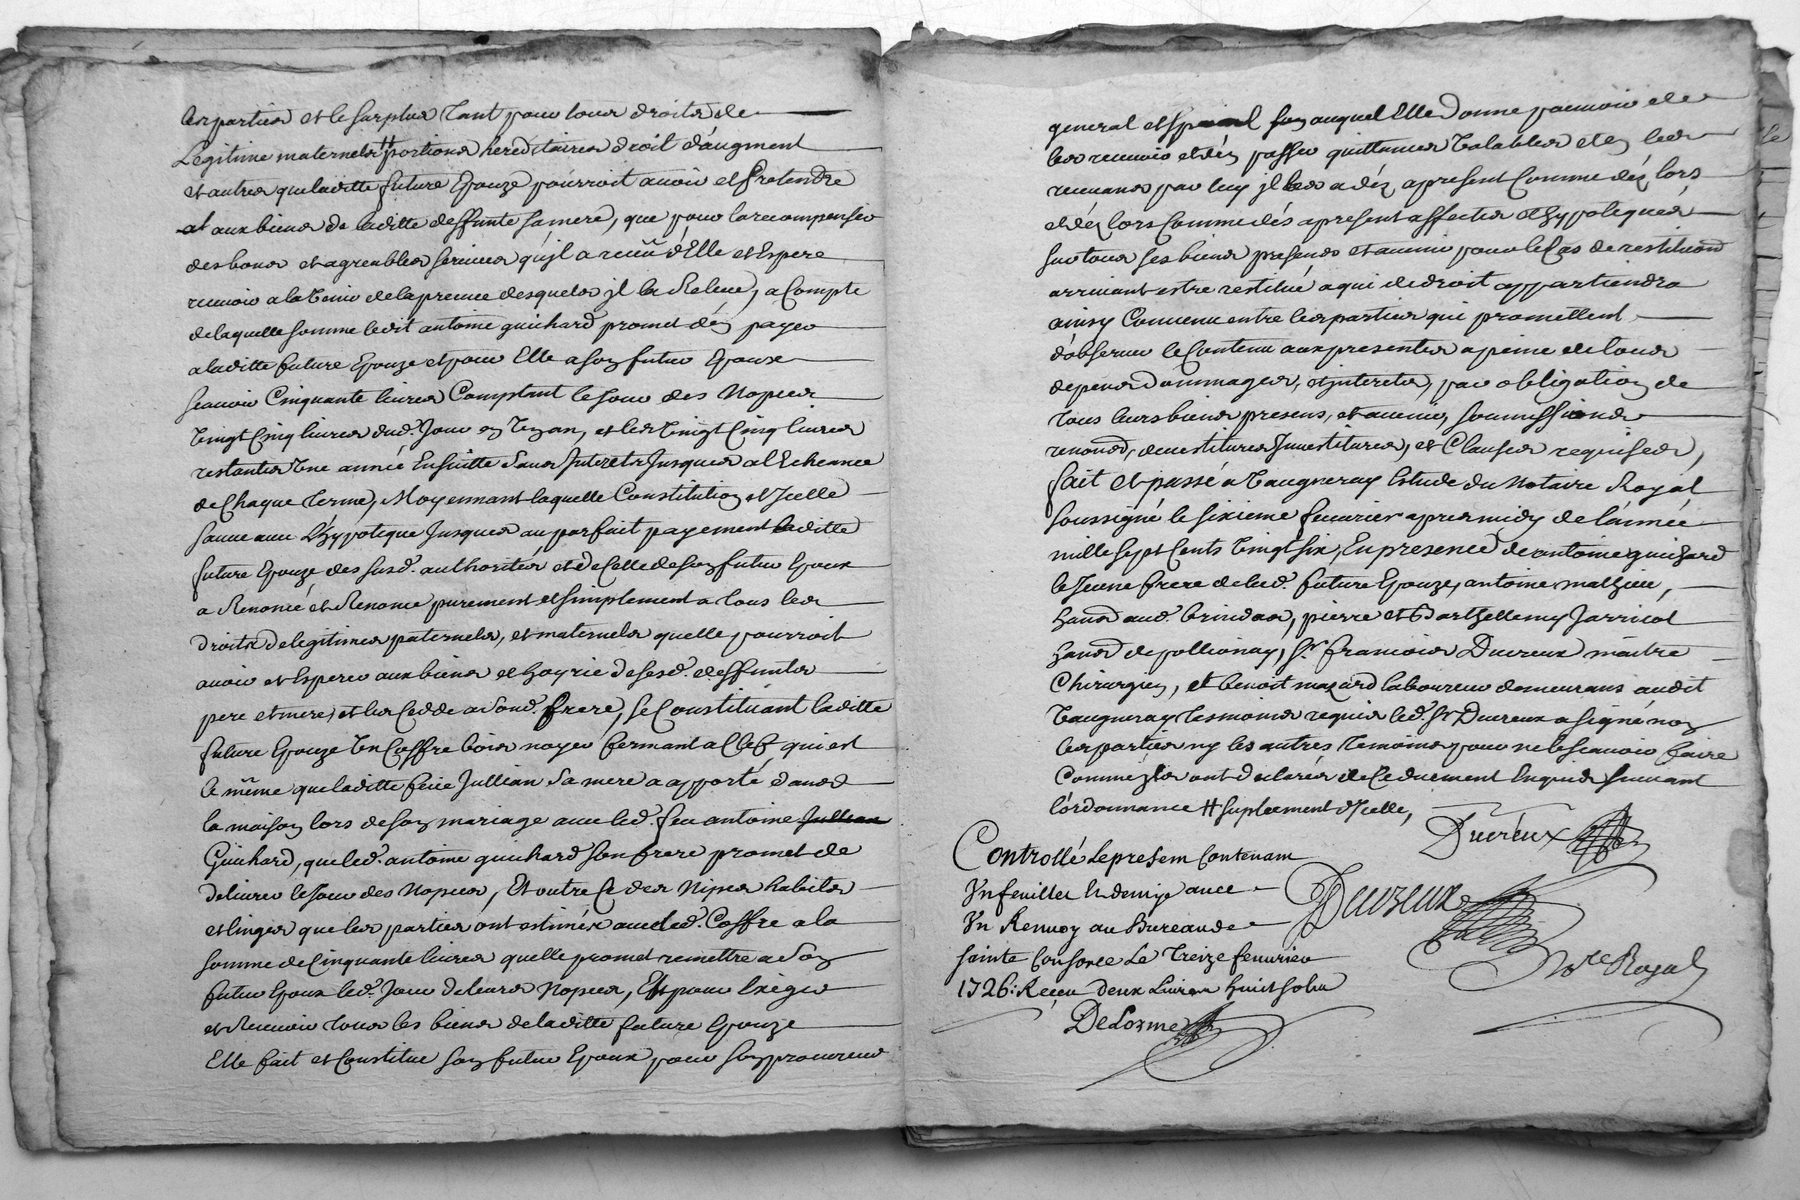 les parties et le surplus tant pour tous droits de
Legitime maternels # portions hereditaires droit d'augment
et autres que laditte future Epouze pourroit avoir et Pretendre
et aux biens de laditte deffunte sa mere, que pour la recompenser
des bons et agreables services qu'jl a receu d'Elle et Espere
recevoir a la venir de la preuve desquels jl la Releve, a Compte
de laquelle somme ledit antoine guichard promet de payer
a laditte future Epouze et pour Elle a son futur Epoux
scavoir Cinquante livres Comptant le jour des Nopces
vingt Cinq livres dud. Jour en Un an, et les vingt Cinq livres
restantes Une année Ensuitte sans Interets Jusques a l'Echeance
de Chaque terme, Moyennant laquelle Constitution et Icelle
sauve avec l'hypoteque Jusques au parfait payement laditte
future Epouze des susd. authorités et de Celle de son futur Epoux
a Renoncé et Renonce purement et simplement a tous les
droits de legitimes paternels, et maternels quelle pourroit
avoir et Esperer aux biens et hoyrie de sesd. deffunts
pere et mere, et les Cedde a sond. frere, se Constituant laditte
future Epouze Un Coffre bois noyer fermant a Clef, qui est
le même que laditte feüe Jullian sa mere a apporté dans
la maison lors de son mariage avec led. feu antoine Jullian
Guichard, que led. antoine guichard son frere promet de
delivrer le jour des Nopces, Et outre Ce des Nipes habits
et linges que les parties ont estimés avec led. Coffre a la
somme de Cinquante livres quelle promet remettre a son
futur Epoux led. Jour de leurs Nopces, Et pour Exiger
et Recevoir tous les biens de laditte future Epouze
Elle fait et Constitue son futur Epoux pour son procureur
general et special auquel Elle donne pouvoir de
les recevoir et d'en passer quittances valables et en les
recevans par luy jl les a dés apresent Comme dés lors
et dés lors Comme dés apresent affectés et hypotequés
sur tous ses biens presens et avenir pour le Cas de restitution
arrivant estre restitué a qui de droit appartiendra
ainsy Convenu entre les parties qui promettent
d'observer le Contenu aux presentes a peine de tous
depens dommages, et interets, par obligation de
tous leurs biens presens, et avenir, soumissions
renons, devestitures Investitures, et Clauses requises,
fait et passé a Vaugneray Estude du Notaire Royal
soussigné le sixieme fevrier apres midy de l'année
mille sept Cents vingt six, En presence de antoine guichard
le Jeune frere de lad. future Epouze, antoine mathieu,
hand aud. brindas, pierre et Barthellemy Jarricot
hands de pollionay, Sr. francois Ducreux maitre
Chirurgien, et benoit mazard laboureur demeurans audit
Vaugneray tesmoins requis led. Sr Ducreux a signé non
les parties ny les autres temoins pour ne le scavoir faire
Comme jls ont declarés de Ce duement Enquis suivant
l'ordonnance # suplement d'Icelle,
Ducreux
Controllé le present Contenant
Un feuillet Et demy avec
Un Renvoy au Bureau de
sainte Consorce Le treize fevrier
1726: Receu deux Livres huit sols
Ducreux
Nore Royal
DeLorme